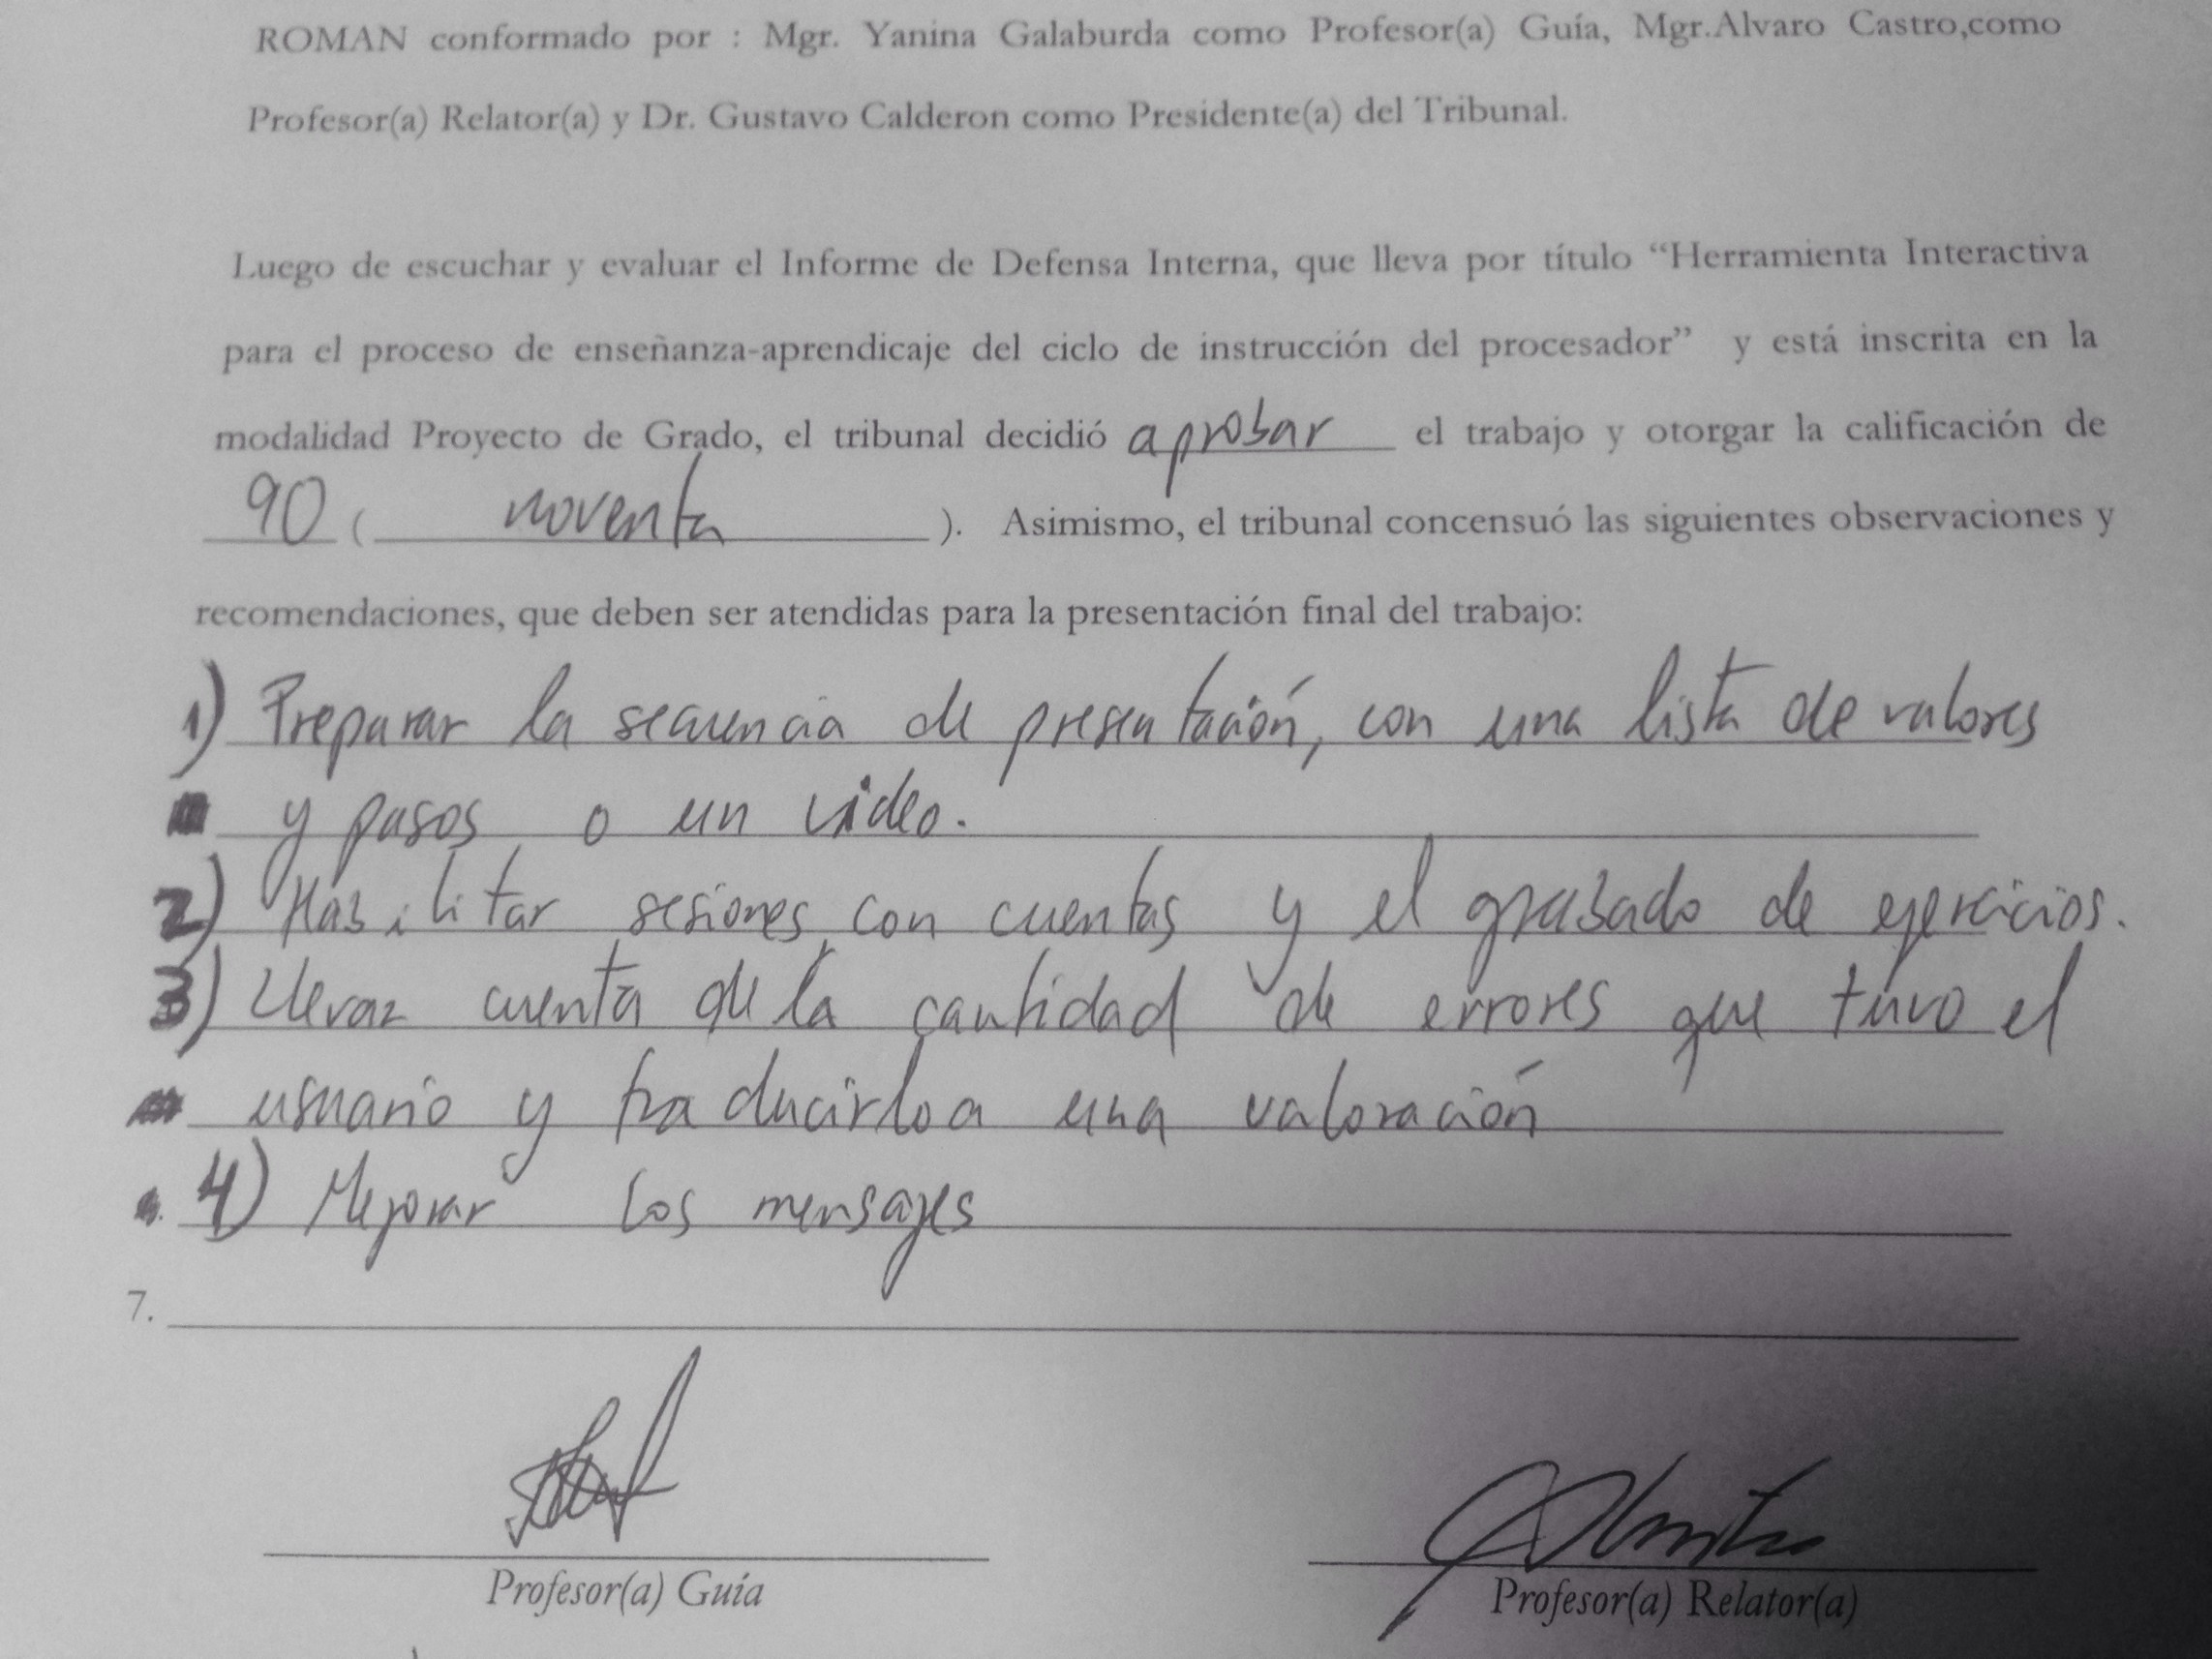 ROMAN conformado por : Mgr. Yanina Galaburda como Profesor(a) Guía, Mgr.Alvaro Castro,como
Profesor(a) Relator(a) y Dr. Gustavo Calderon como Presidente(a) del Tribunal.
Luego de escuchar y evaluar el Informe de Defensa Interna, que lleva por título “Herramienta Interactiva
para el proceso de enseñanza-aprendicaje del ciclo de instrucción del procesador” y está inscrita en la
modalidad Proyecto de Grado, el tribunal decidió aprobar el trabajo y otorgar la calificación de
90 ( noventa ). Asimismo, el tribunal concensuó las siguientes observaciones y
recomendaciones, que deben ser atendidas para la presentación final del trabajo:
1) Preparar la secuencia de presentación, con una lista de valores
y pasos o un video.
2) Habilitar sesiones con cuentas y el grabado de ejercicios.
3) Llevar cuenta de la cantidad de errores que tuvo el
usuario y traducirlo a una valoración
4) Mejorar los mensajes
7.
Profesor(a) Guía
Profesor(a) Relator(a)